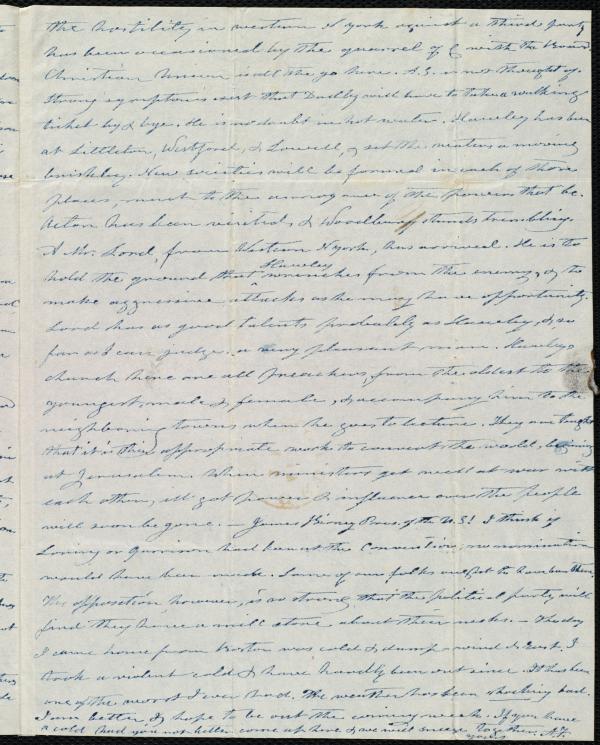 the hostility in western N York against a third party
has been occasioned by the quarrel of G with the Board.
Christian Union is all the go here. A.S. is not thought of.
Strong symptoms exist that Dudley will have to take a walking
ticket by & bye. He is no doubt in hot water. Hawley has been
at Littleton, Westford, & Lowell, & set the waters a moving
briskly. New societies will be formed in each of those
places, much to the annoyance of the powers that be.
Acton has been visited & Woodbury stands trembling.
A Mr. Lord, from Western N York, has arrived. He is to
hold the ground that Hawley wrenches from the enemy, & to
make aggressive attacks as he may have opportunity.
Lord has as good talents probably as Hawley, & so
far as I can judge, a very pleasant man. Hawley's
church here are all preachers, from the oldest to the
youngest, male & female, & accompany him to the
neighboring towns when he goes to lecture. They are taught
that it is their appropriate work to convert the world, beginning
at Jerusalem. When ministers get well at war with
each other, all got power & influence over the people
will soon be gone. — James Birney Pres. of the U.S! I think if
Loring or Garrison had been at the Convention, no nomination
would have been made. Some of our folks
The opposition however, is so strong, that the political party will
find they have a mill stone about their necks. — The day
I came home from Boston was cold & damp — wind N. East. I
took a violent cold & have hardly been out since. It has been
one of the worst I ever had. The weather has been shocking bad.
I am better & hope to be out the coming week. If you have
a cold had you not better come up here & we will sneeze together.
yours